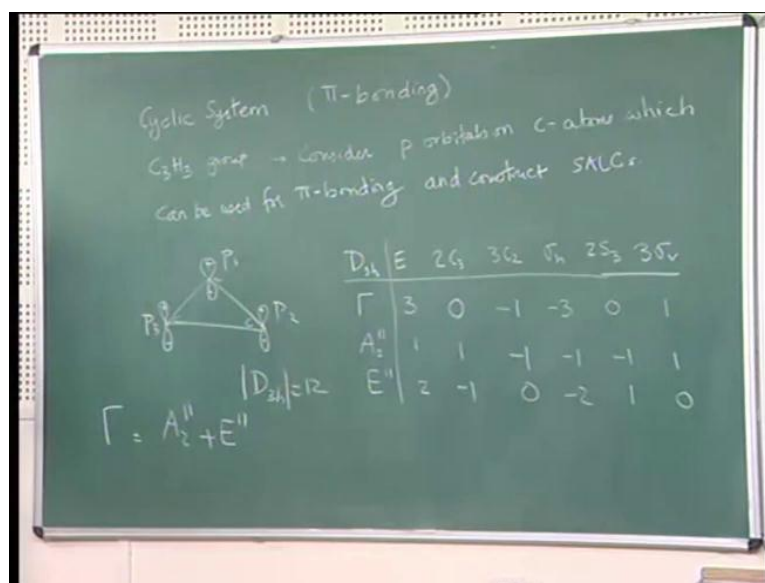 Cyclic System (π-bonding)
C₃H₃ group → Consider p orbitals on C-atoms which
can be used for π-bonding and construct SALCs
P₁
P₃
P₂
D₃ₕ E 2C₃ 3C₂ σₕ 2S₃ 3σᵥ
Γ 3 0 -1 -3 0 1
A₂'' 1 1 -1 -1 -1 1
E'' 2 -1 0 -2 1 0
|D₃ₕ| = 12
Γ = A₂'' + E''